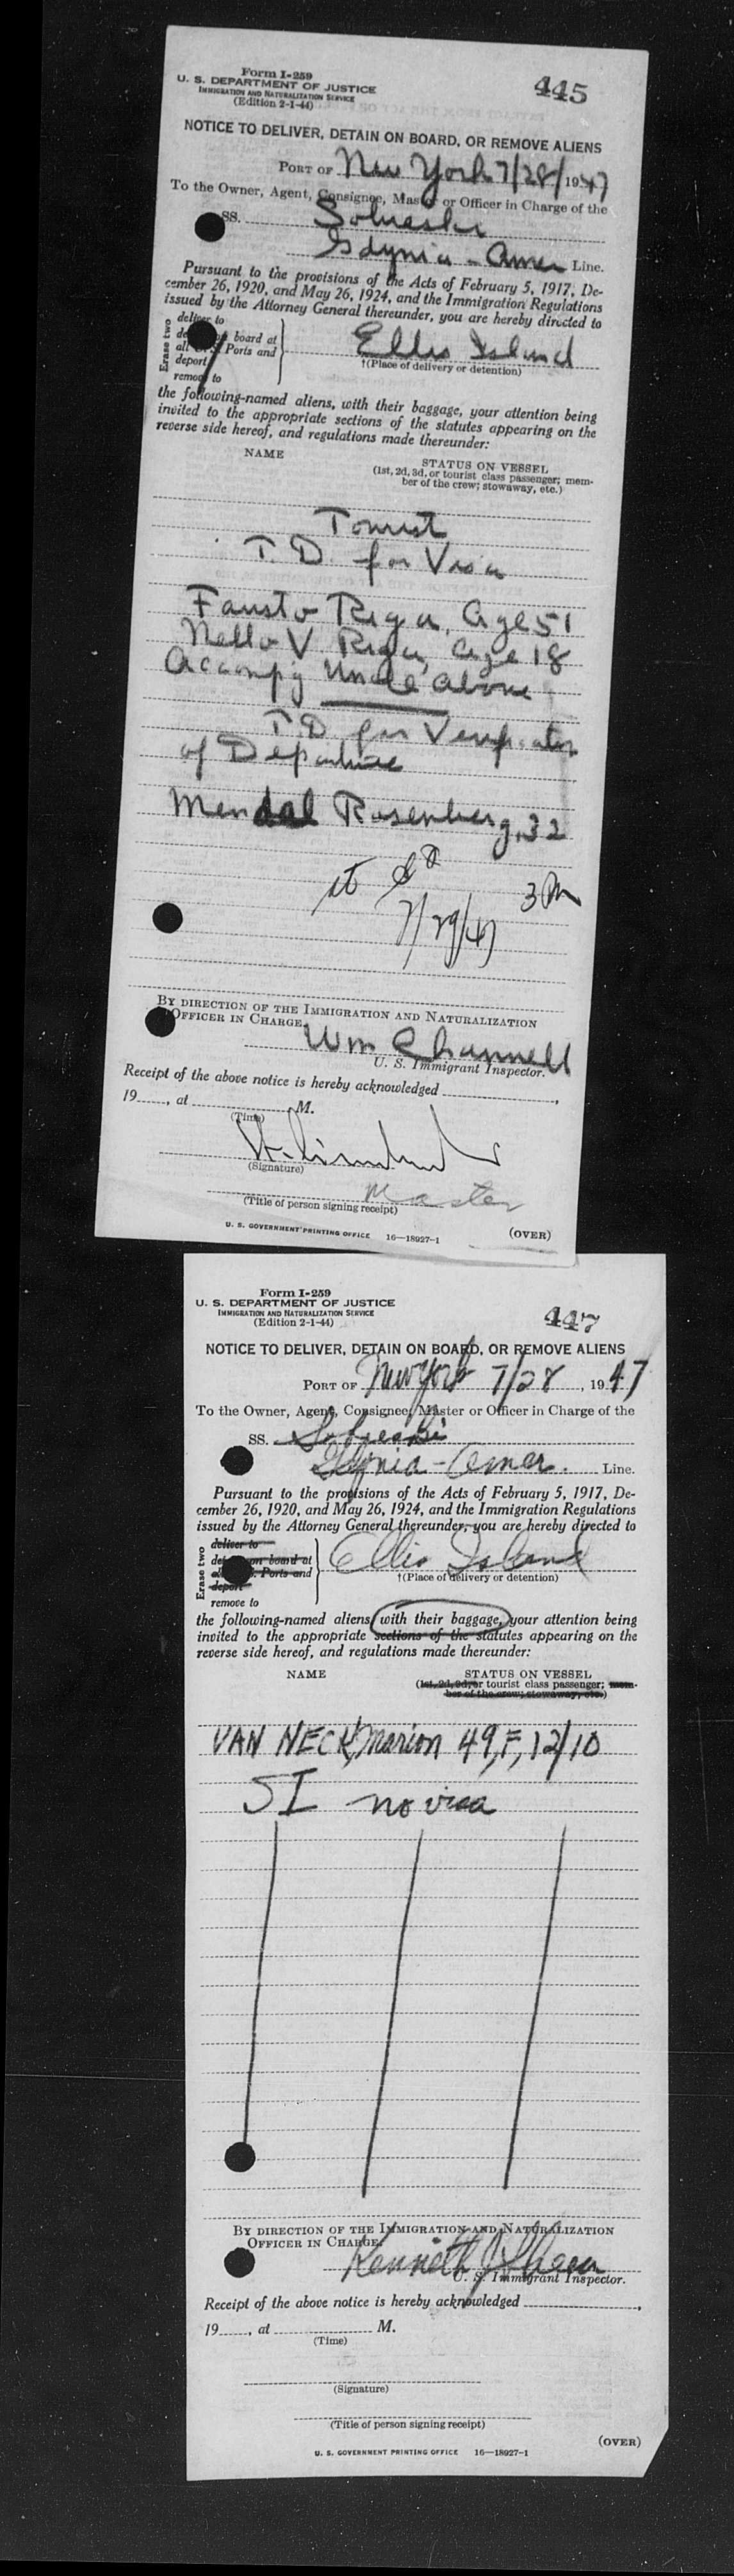 Form I-259
U. S. DEPARTMENT OF JUSTICE
IMMIGRATION AND NATURALIZATION SERVICE
(Edition 2-1-44)
445
NOTICE TO DELIVER, DETAIN ON BOARD, OR REMOVE ALIENS
PORT OF New York 7/28/1947
To the Owner, Agent, Consignee, Master or Officer in Charge of the
SS. Sobieski
Gdynia - Amer Line.
Pursuant to the provisions of the Acts of February 5, 1917, De-
cember 26, 1920, and May 26, 1924, and the Immigration Regulations
issued by the Attorney General thereunder, you are hereby directed to
Erase two
deliver to
board at
all Ports and
deport
remove to
Ellis Island
†(Place of delivery or detention)
the following-named aliens, with their baggage, your attention being
invited to the appropriate sections of the statutes appearing on the
reverse side hereof, and regulations made thereunder:
NAME
STATUS ON VESSEL
(1st, 2d, 3d, or tourist class passenger; mem-
ber of the crew; stowaway, etc.)
Tourist
T. D. for Visa
Fausto Riga, age 51
Nello V Riga, age 18
Accompg Uncle above
T. D for Verification
of Departure
Mendal Rosenberg, 32
7/29/47
By DIRECTION OF THE IMMIGRATION AND NATURALIZATION
OFFICER IN CHARGE,
Wm Channell
U. S. Immigrant Inspector.
Receipt of the above notice is hereby acknowledged
19, at M.
(Time)
(Signature)
Master
(Title of person signing receipt)
U. S. GOVERNMENT PRINTING OFFICE 16—18927-1
(OVER)
Form I-259
U. S. DEPARTMENT OF JUSTICE
IMMIGRATION AND NATURALIZATION SERVICE
(Edition 2-1-44)
447
NOTICE TO DELIVER, DETAIN ON BOARD, OR REMOVE ALIENS
PORT OF New York 7/28, 1947
To the Owner, Agent, Consignee, Master or Officer in Charge of the
SS. Sobieski
Gdynia - Amer. Line.
Pursuant to the provisions of the Acts of February 5, 1917, De-
cember 26, 1920, and May 26, 1924, and the Immigration Regulations
issued by the Attorney General thereunder, you are hereby directed to
Erase two
deliver to
on board at
Ports and
deport
remove to
Ellis Island
†(Place of delivery or detention)
the following-named aliens, with their baggage, your attention being
invited to the appropriate sections of the statutes appearing on the
reverse side hereof, and regulations made thereunder:
NAME
STATUS ON VESSEL
(1st, 2d, 3d, or tourist class passenger; mem-
ber of the crew; stowaway, etc.)
VAN NECK, Marion 49, F, 12/10
SI no visa
By DIRECTION OF THE IMMIGRATION AND NATURALIZATION
OFFICER IN CHARGE,
Kenneth J Shea
U. S. Immigrant Inspector.
Receipt of the above notice is hereby acknowledged
19, at M.
(Time)
(Signature)
(Title of person signing receipt)
(OVER)
U. S. GOVERNMENT PRINTING OFFICE 16—18927-1